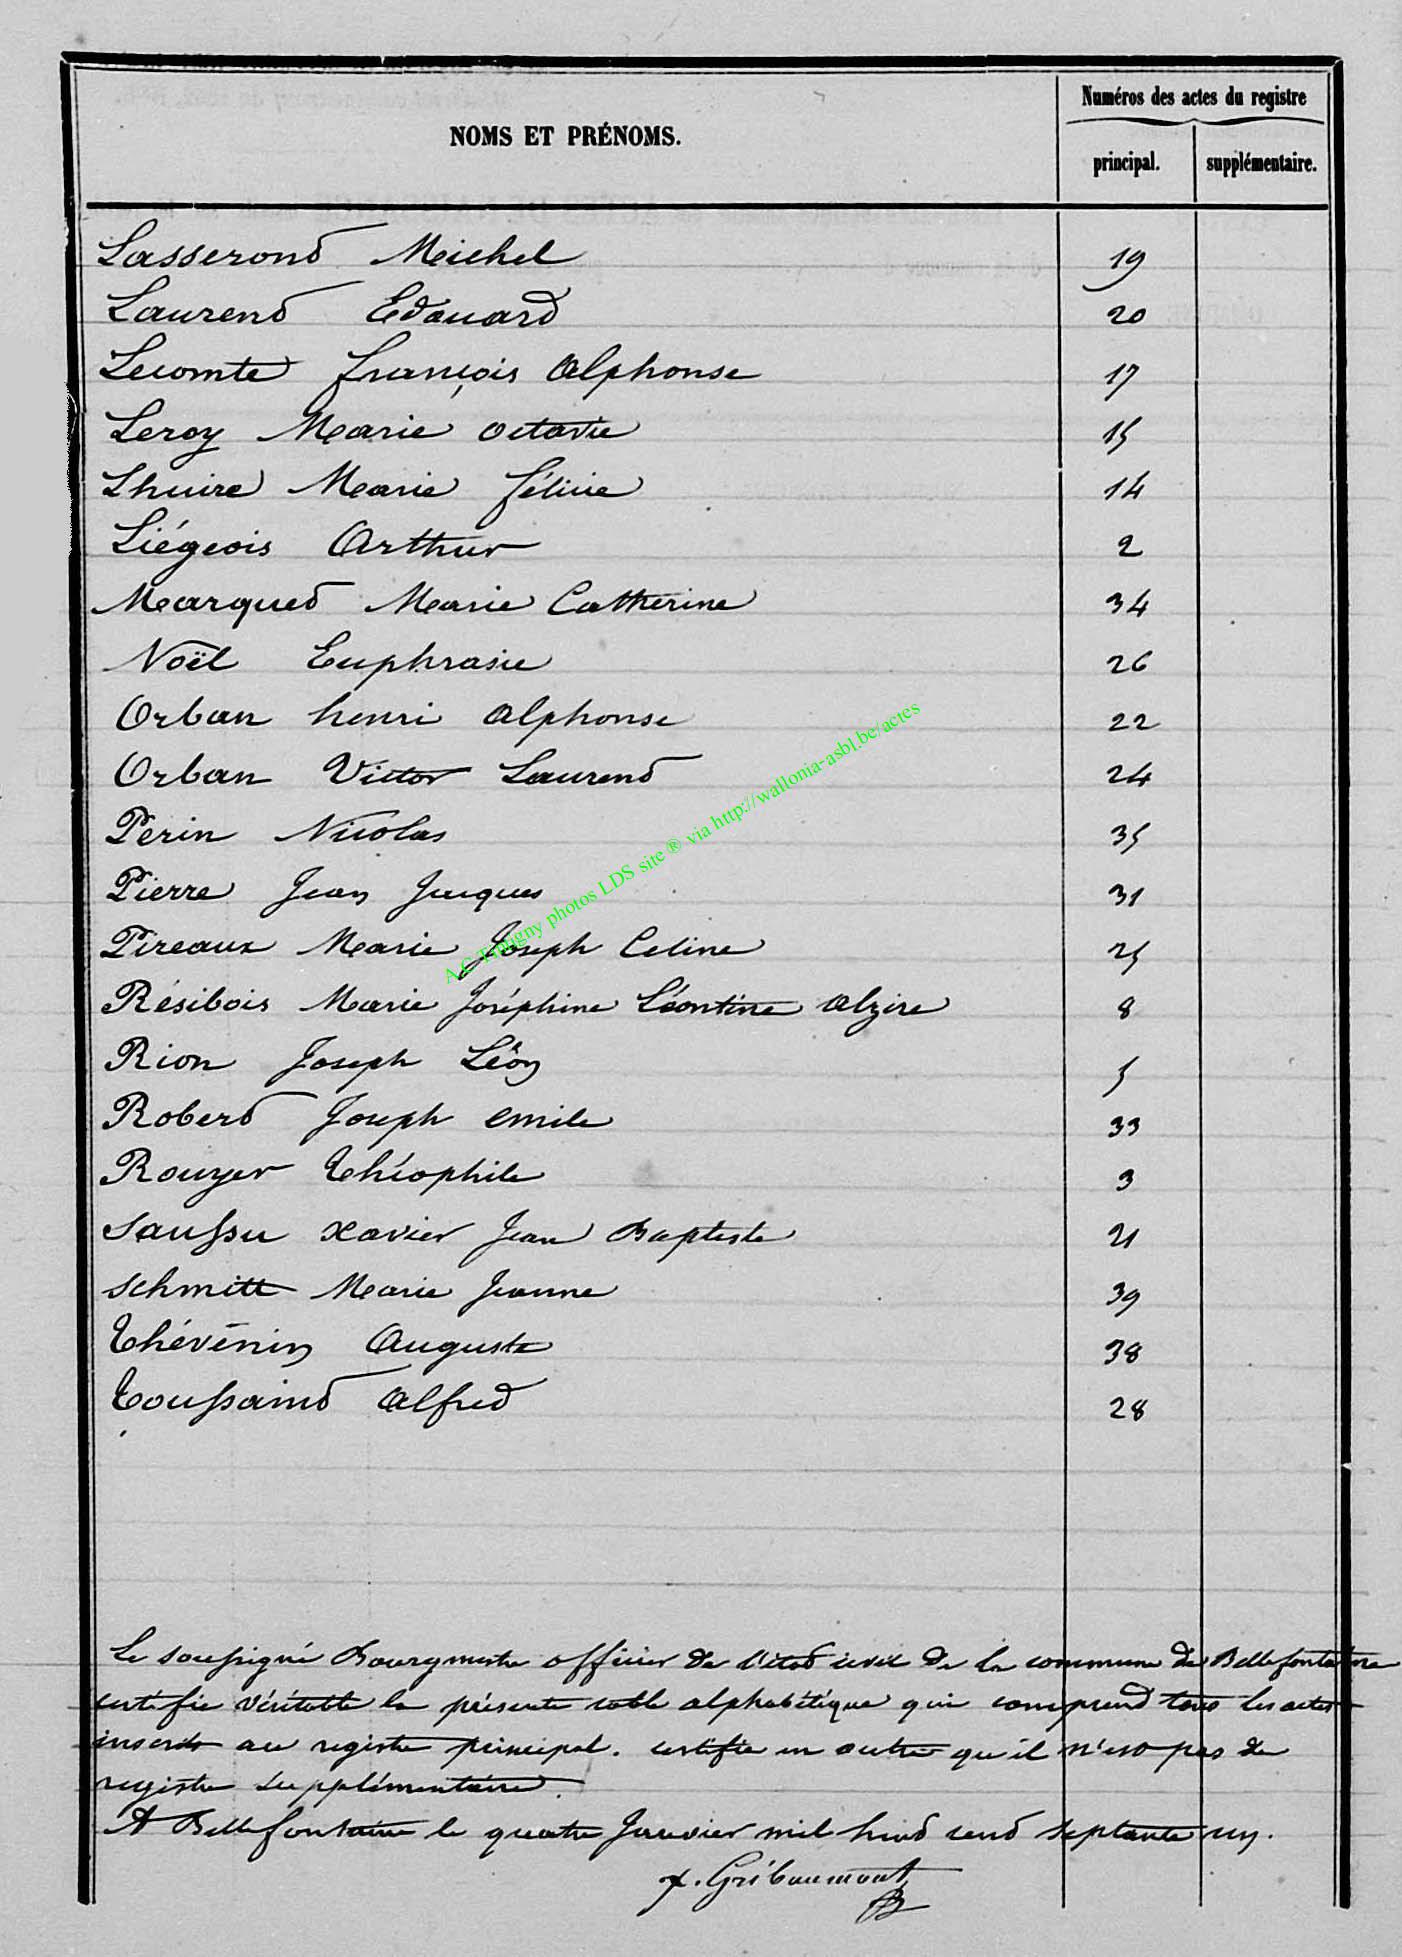 Numéros des actes du registre
NOMS ET PRÉNOMS.
principal. supplémentaire.
Lasseront Michel 19
Laurent Edouard 20
Lecomte françois Alphonse 17
Leroy Marie octavie 15
Lhuire Marie féline 14
Liégeois Arthur 2
Marquet Marie Catherine 34
Noël Euphrasie 26
Orban henri Alphonse 22
Orban Victor Laurent 24
Perin Nicolas 35
Pierre Jean Jacques 31
Pireaux Marie Joseph Celine 25
Résibois Marie Joséphine Léontine Alzire 8
Rion Joseph Léon 5
Robert Joseph emile 33
Rouyer Théophile 3
Saussu Xavier Jean Baptiste 21
schmitt Marie Jeanne 39
Thévenin Auguste 38
Toussaint Alfred 28
A.C Tintigny photos LDS site ® via http://wallonia-asbl.be/actes
Le soussigné Bourgmestre officier de l'état civil de la commune de Bellefontaine
certifie véritable la présente table alphabétique qui comprend tous les actes
inserits au registre principal. certifie en outre qu'il n'est pas de
registre supplémentaire.
A Bellefontaine le quatre Janvier mil huit cent septante un.
Gribaumont